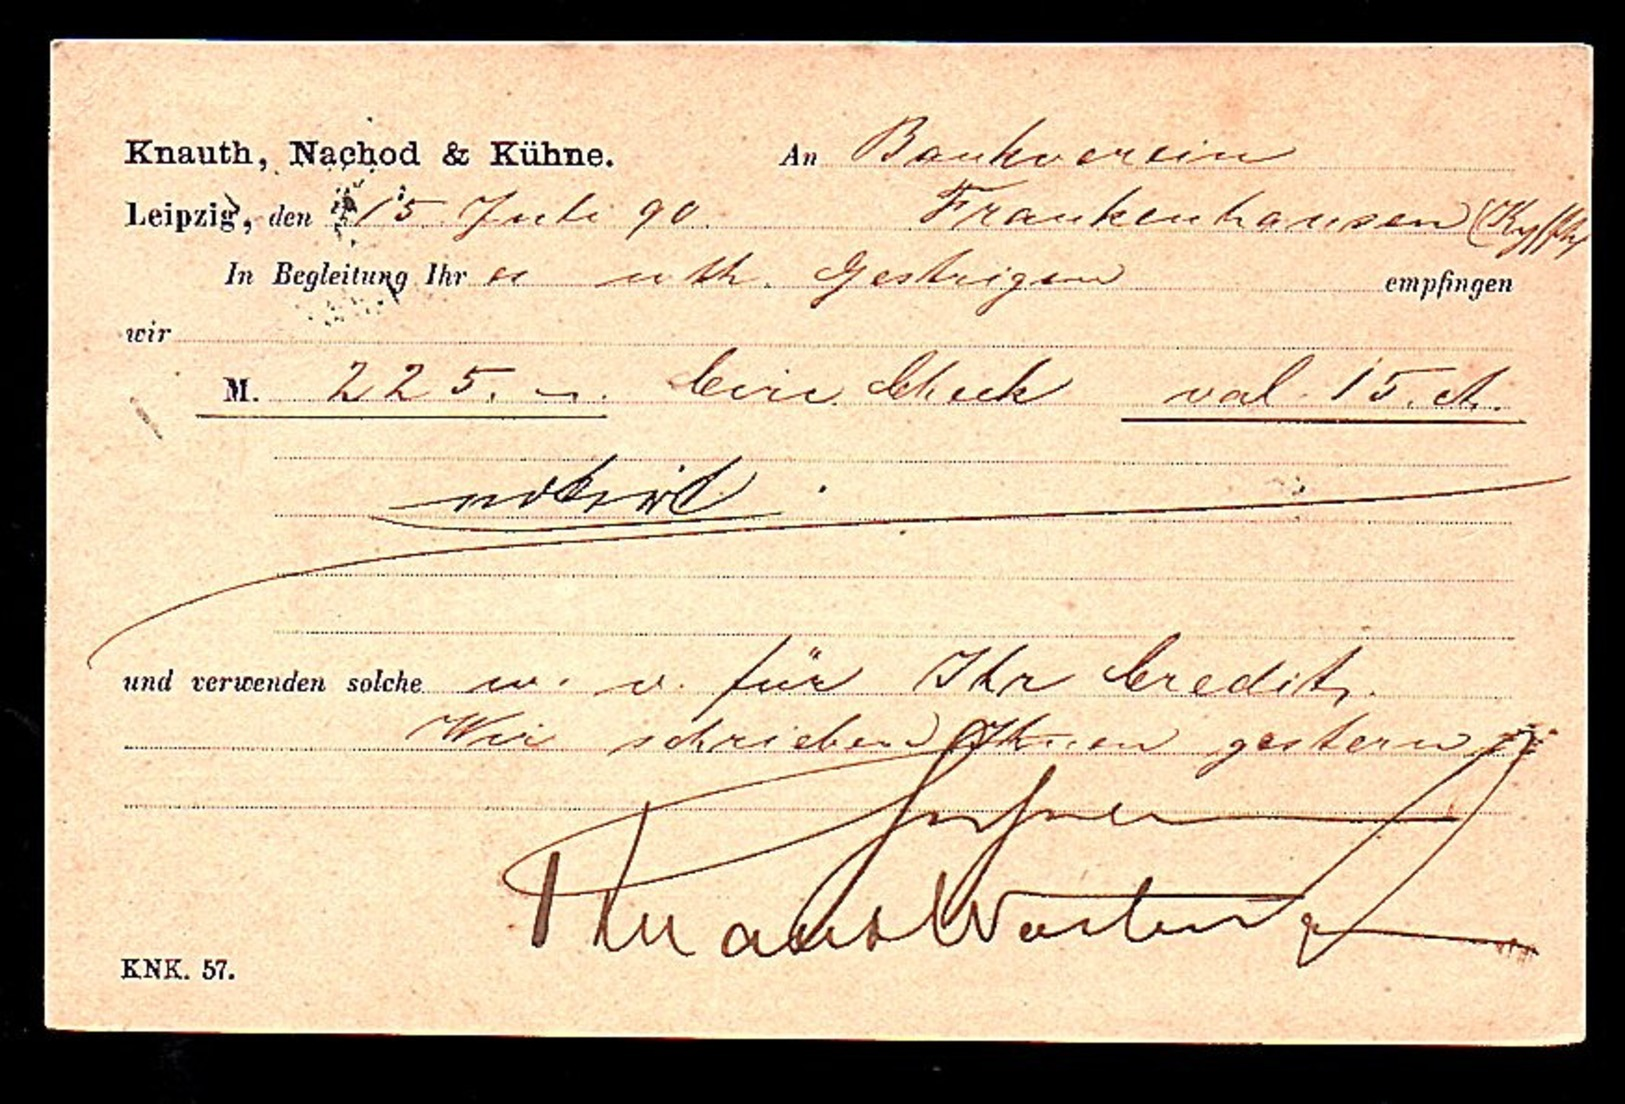 Knauth, Nachod & Kühne. An Bankverein
Leipzig, den 15 Juli 90. Frankenhausen (Kyffh
In Begleitung Ihr es Gestrigen empfingen
wir
M. 225.– Check val. 15. ct.
notirt
und verwenden solche w. v. für Ihr Credit.
Wir schrieben Ihnen gestern
KNK. 57.